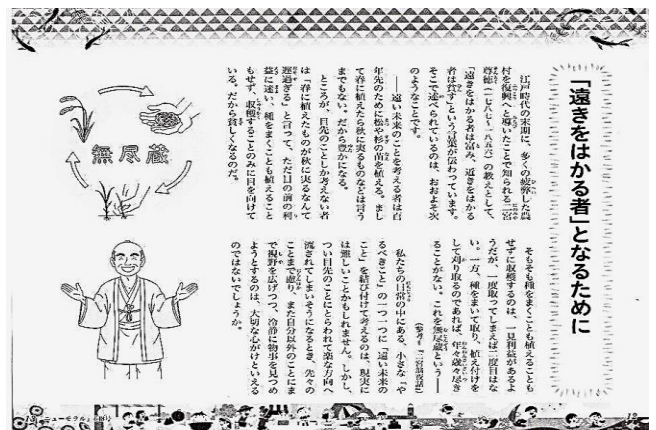 「遠きをはかる者」となるために
江戸時代の末期に、多くの疲弊した農
村を復興へと導いたことで知られる二宮
尊徳(一七八七〜一八五六)の教えとして、
「遠きをはかる者は富み、近きをはかる
者は貧す」という言葉が伝わっています。
そこで述べられているのは、おおよそ次
のようなことです。
――遠い未来のことを考える者は百
年先のために松や杉の苗を植える。まし
て春に植えたら秋に実るものなどは言う
までもない。だから豊かになる。
ところが、目先のことしか考えない者
は「春に植えたものが秋に実るなんて
遅過ぎる」と言って、ただ目の前の利
益に迷い、種をまくことも植えること
もせず、収穫することのみに目を向けて
いる。だから貧しくなるのだ。
そもそも種をまくことも植えることも
せずに収穫するのは、一見利益があるよ
うだが、一度取ってしまえば二度目はな
い。一方、種をまいて取り、植え付けを
して刈り取るのであれば、年々歳々尽き
ることがない。これを無尽蔵という――
(参考=『二宮翁夜話』)
私たちの日常の中にある、小さな「や
るべきこと」の一つ一つに「遠い未来の
こと」を結び付けて考えるのは、現実に
は難しいことかもしれません。しかし、
つい目先のことにとらわれて楽な方向へ
流されてしまいそうになるとき、先々の
ことまで慮り、また自分以外のことにま
で視野を広げつつ、冷静に物事を見つめ
ようとするのは、大切な心がけといえる
のではないでしょうか。
無尽蔵
ニューモラル
12